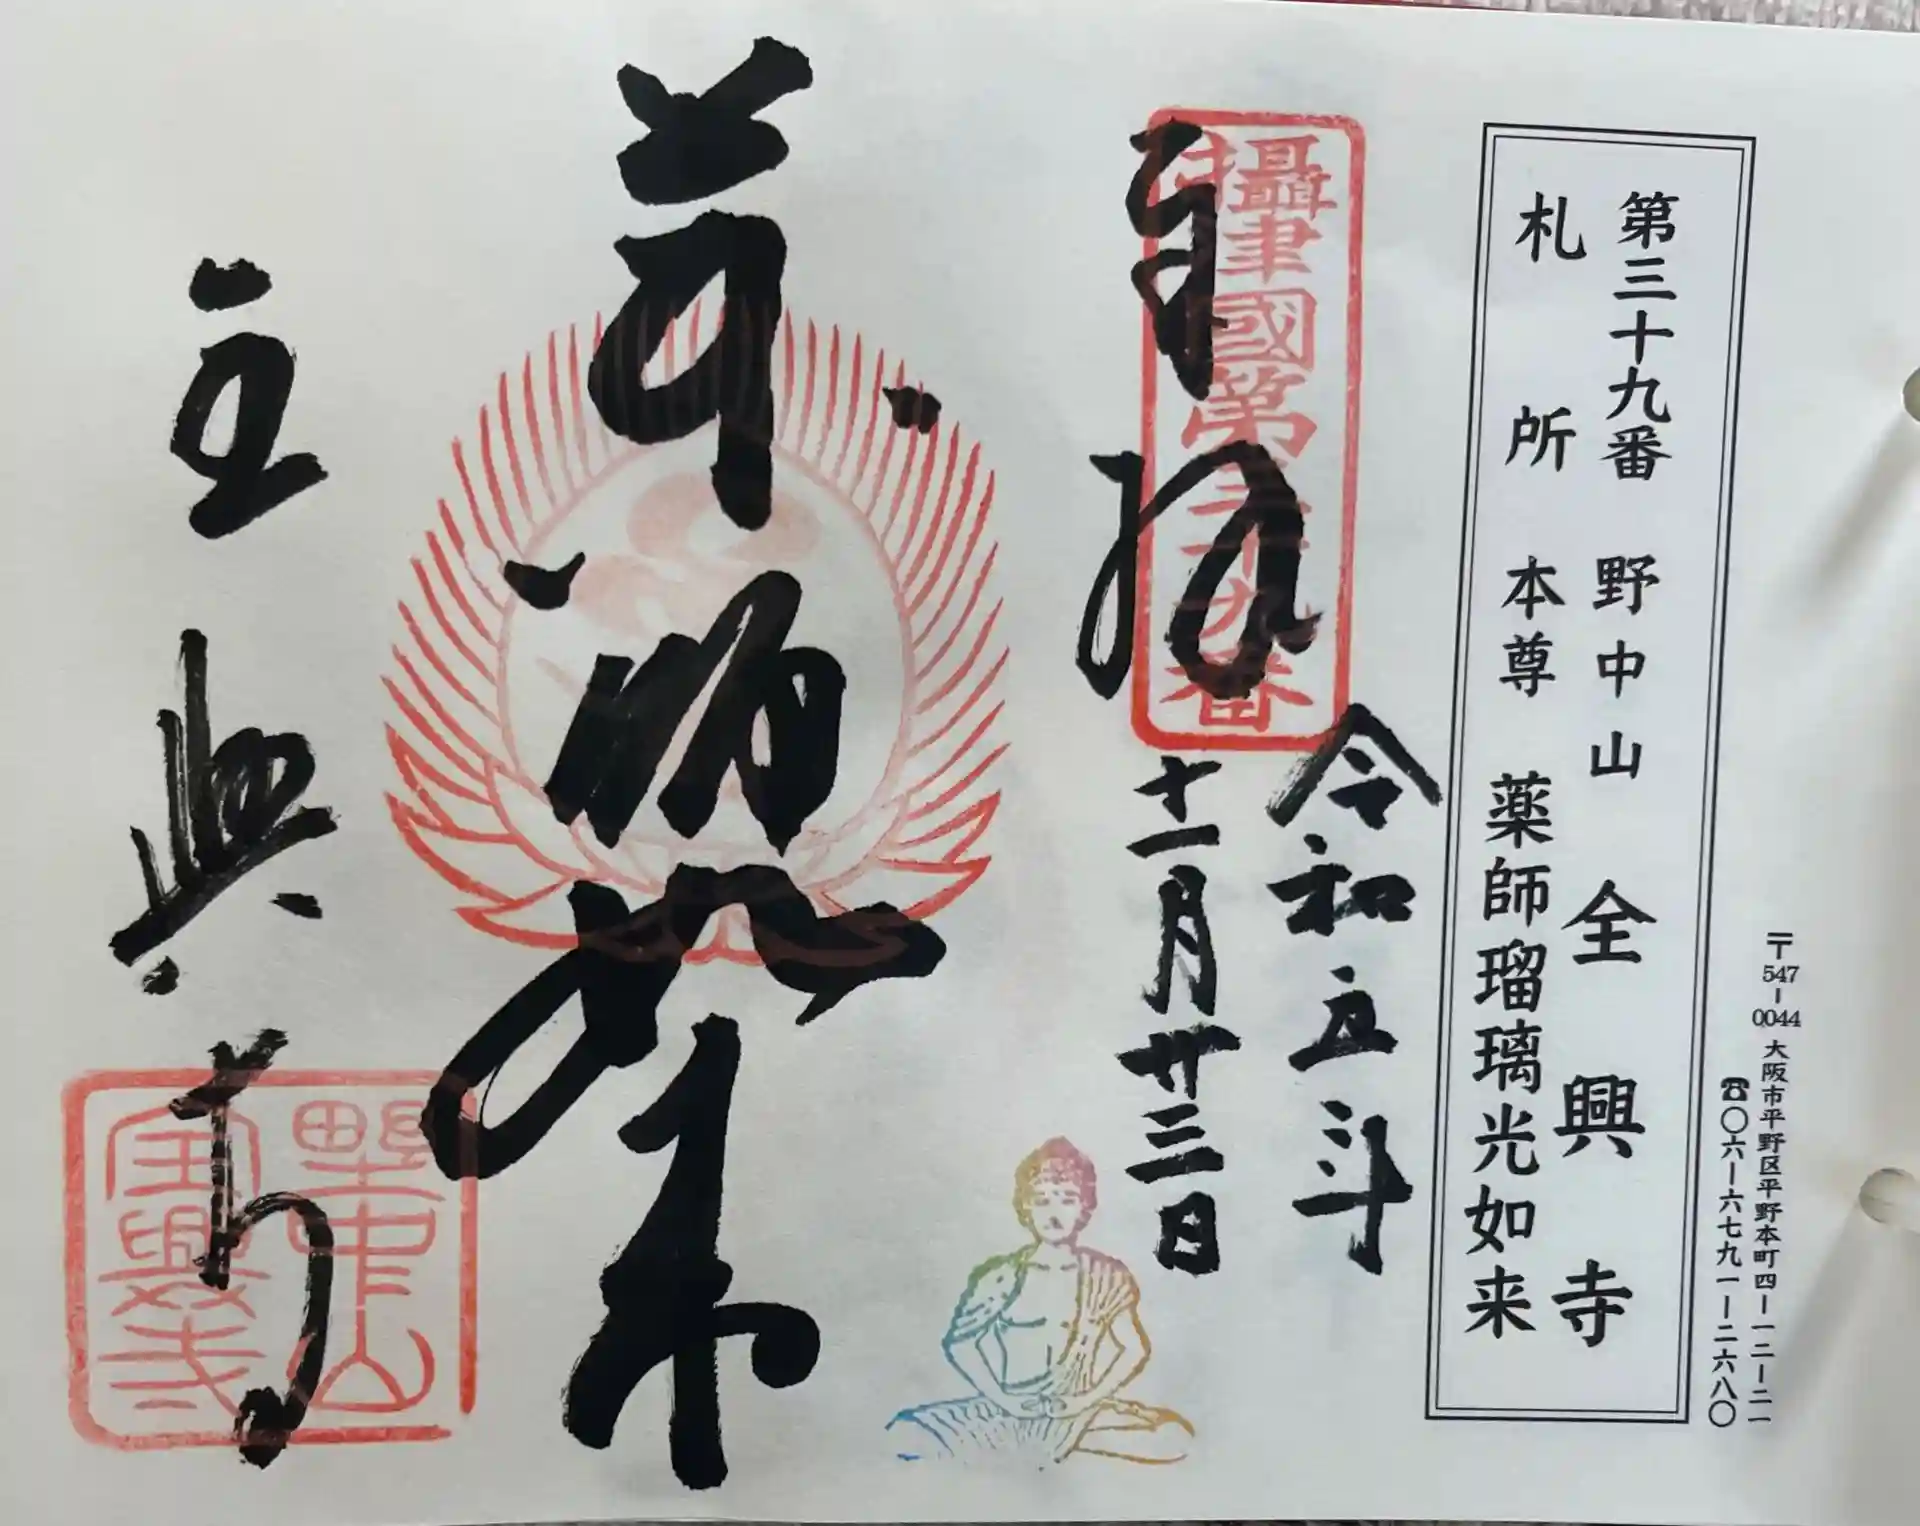 〒547-0044 大阪市平野区平野本町四-一二-二一
☎〇六-六七九一-二六八〇
第三十九番 野中山 全興寺
札所 本尊 薬師瑠璃光如来
攝津國第三十九番
奉拝
令和五年
十一月廿三日
薬師如来
全興寺
野中山
全興寺